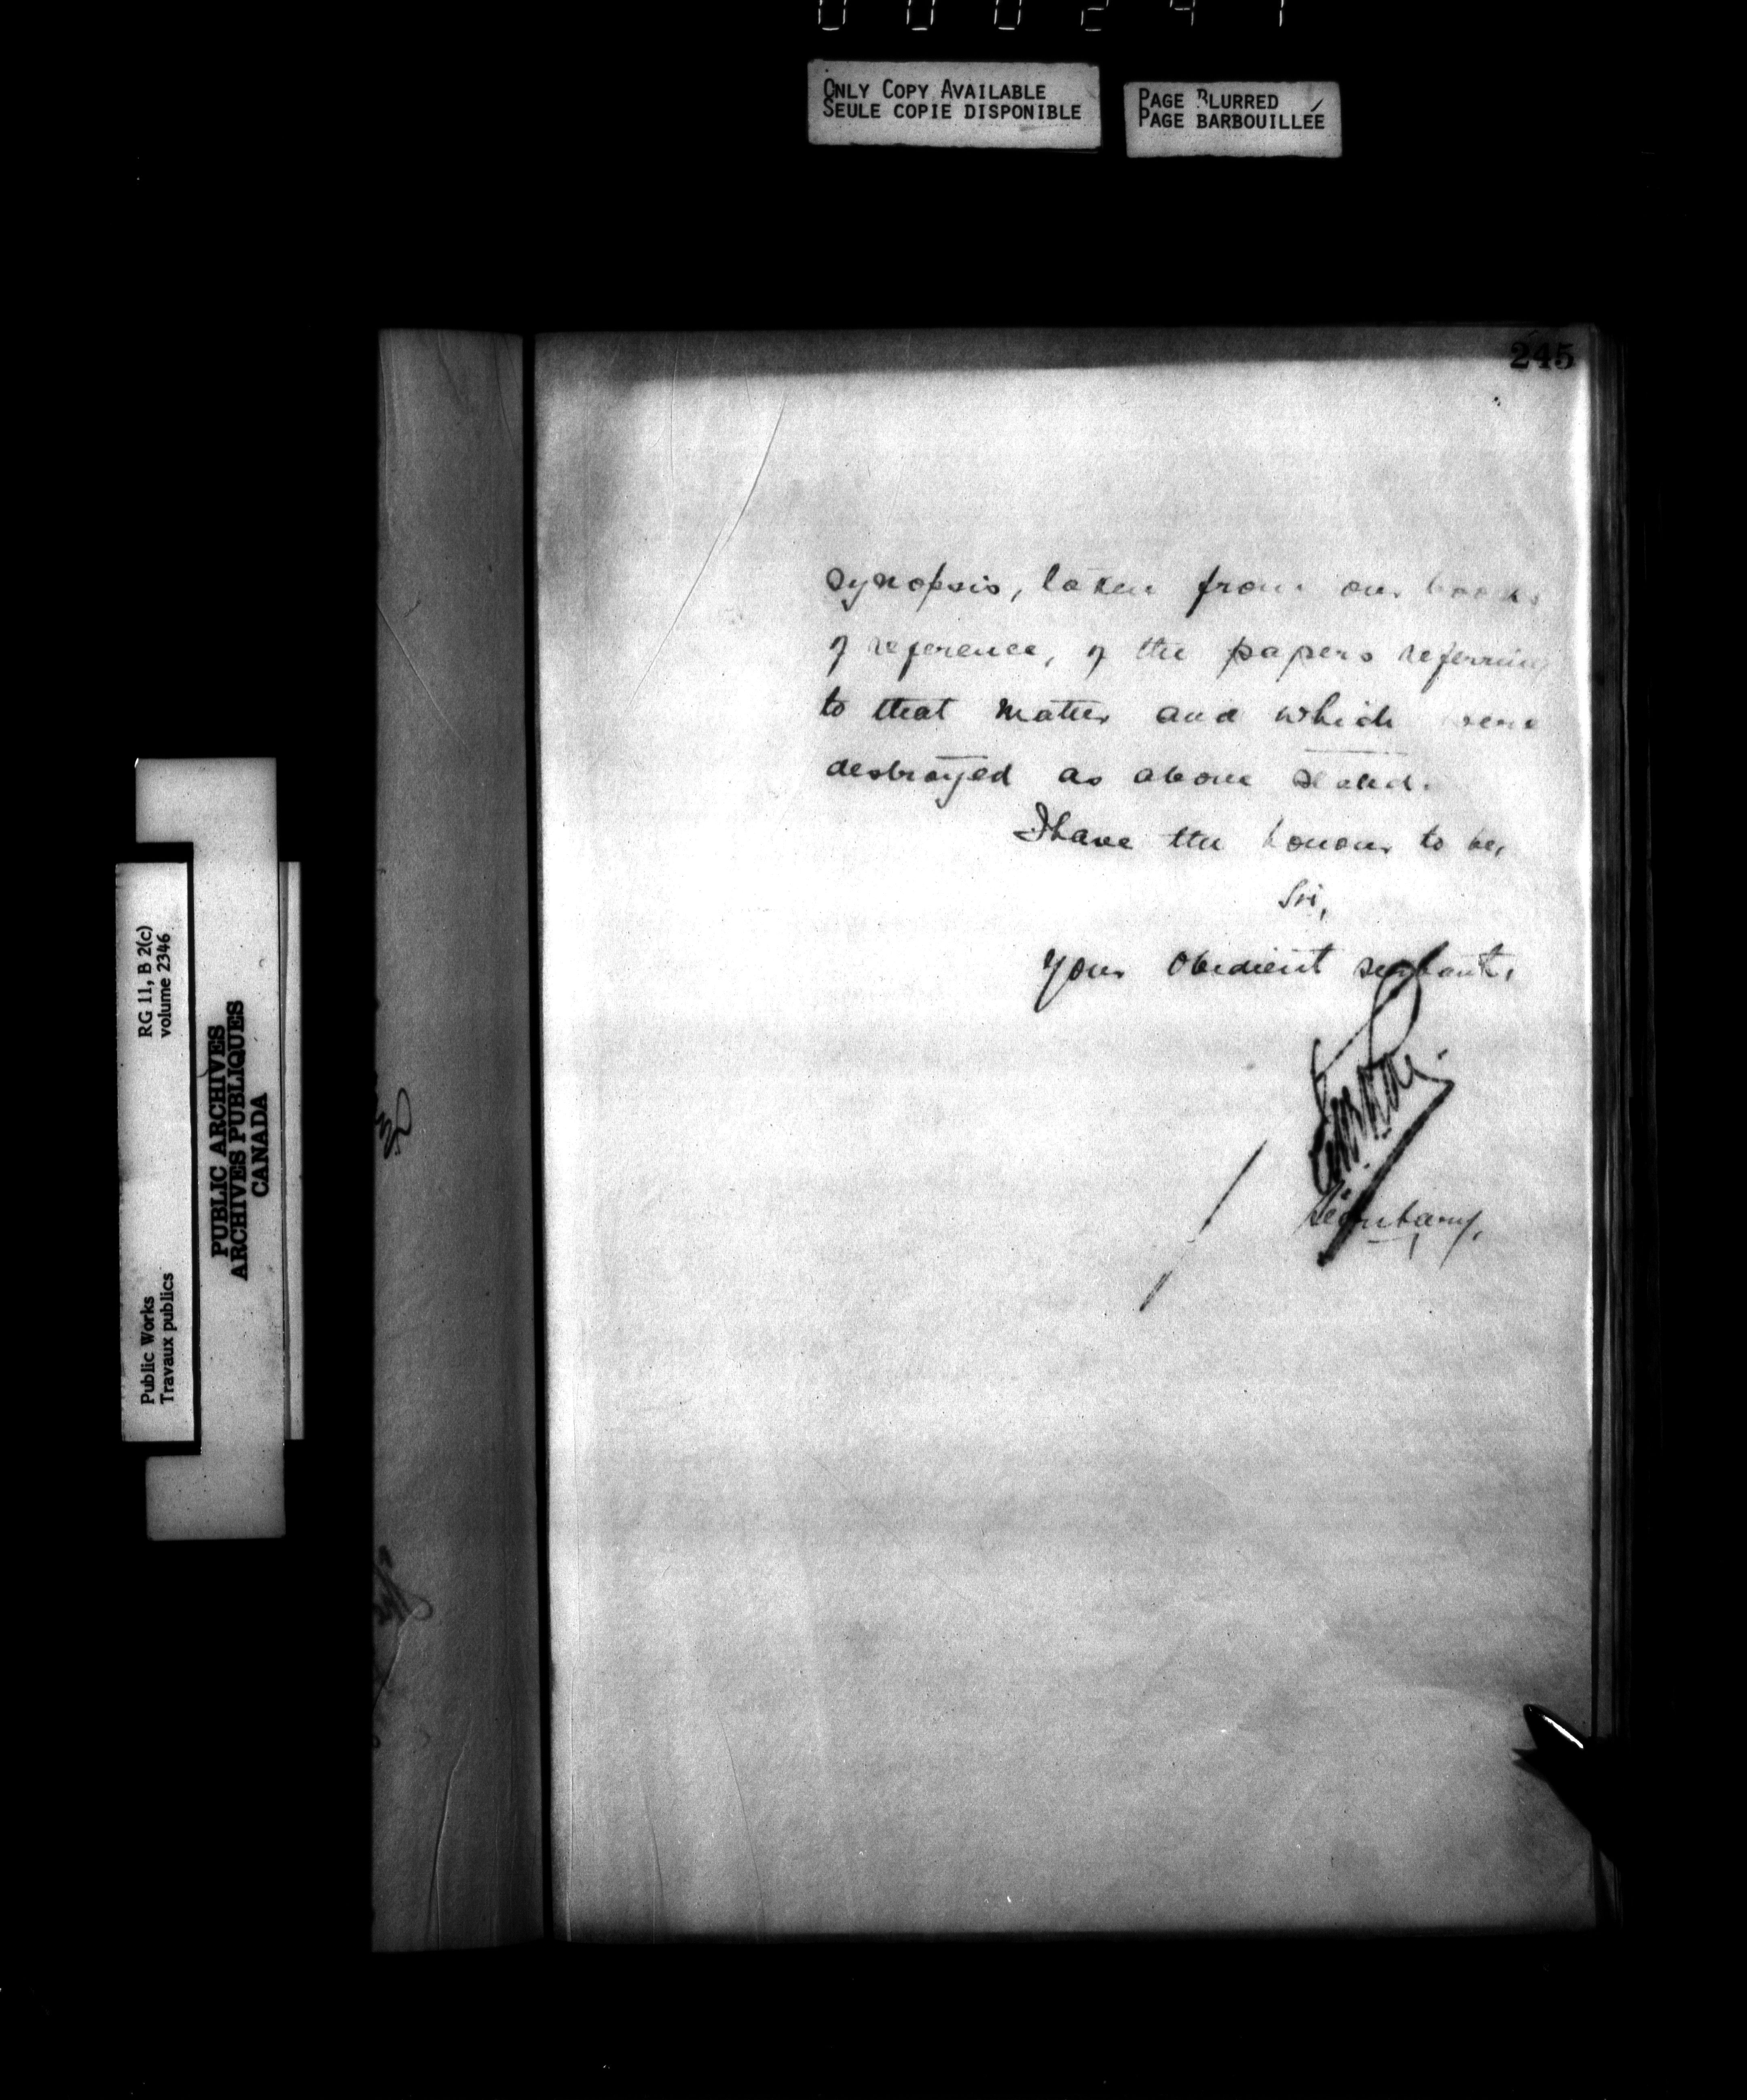 000241
ONLY COPY AVAILABLE
SEULE COPIE DISPONIBLE
PAGE BLURRED
PAGE BARBOUILLÉE
245
synopsis, taken from our books
of reference, of the papers referring
to that matter and which were
destroyed as above stated.
I have the honour to be,
Sir,
Your obedient servant,
Secretary.
RG 11, B 2(c)
volume 2346
Public Works
Travaux publics
PUBLIC ARCHIVES
ARCHIVES PUBLIQUES
CANADA